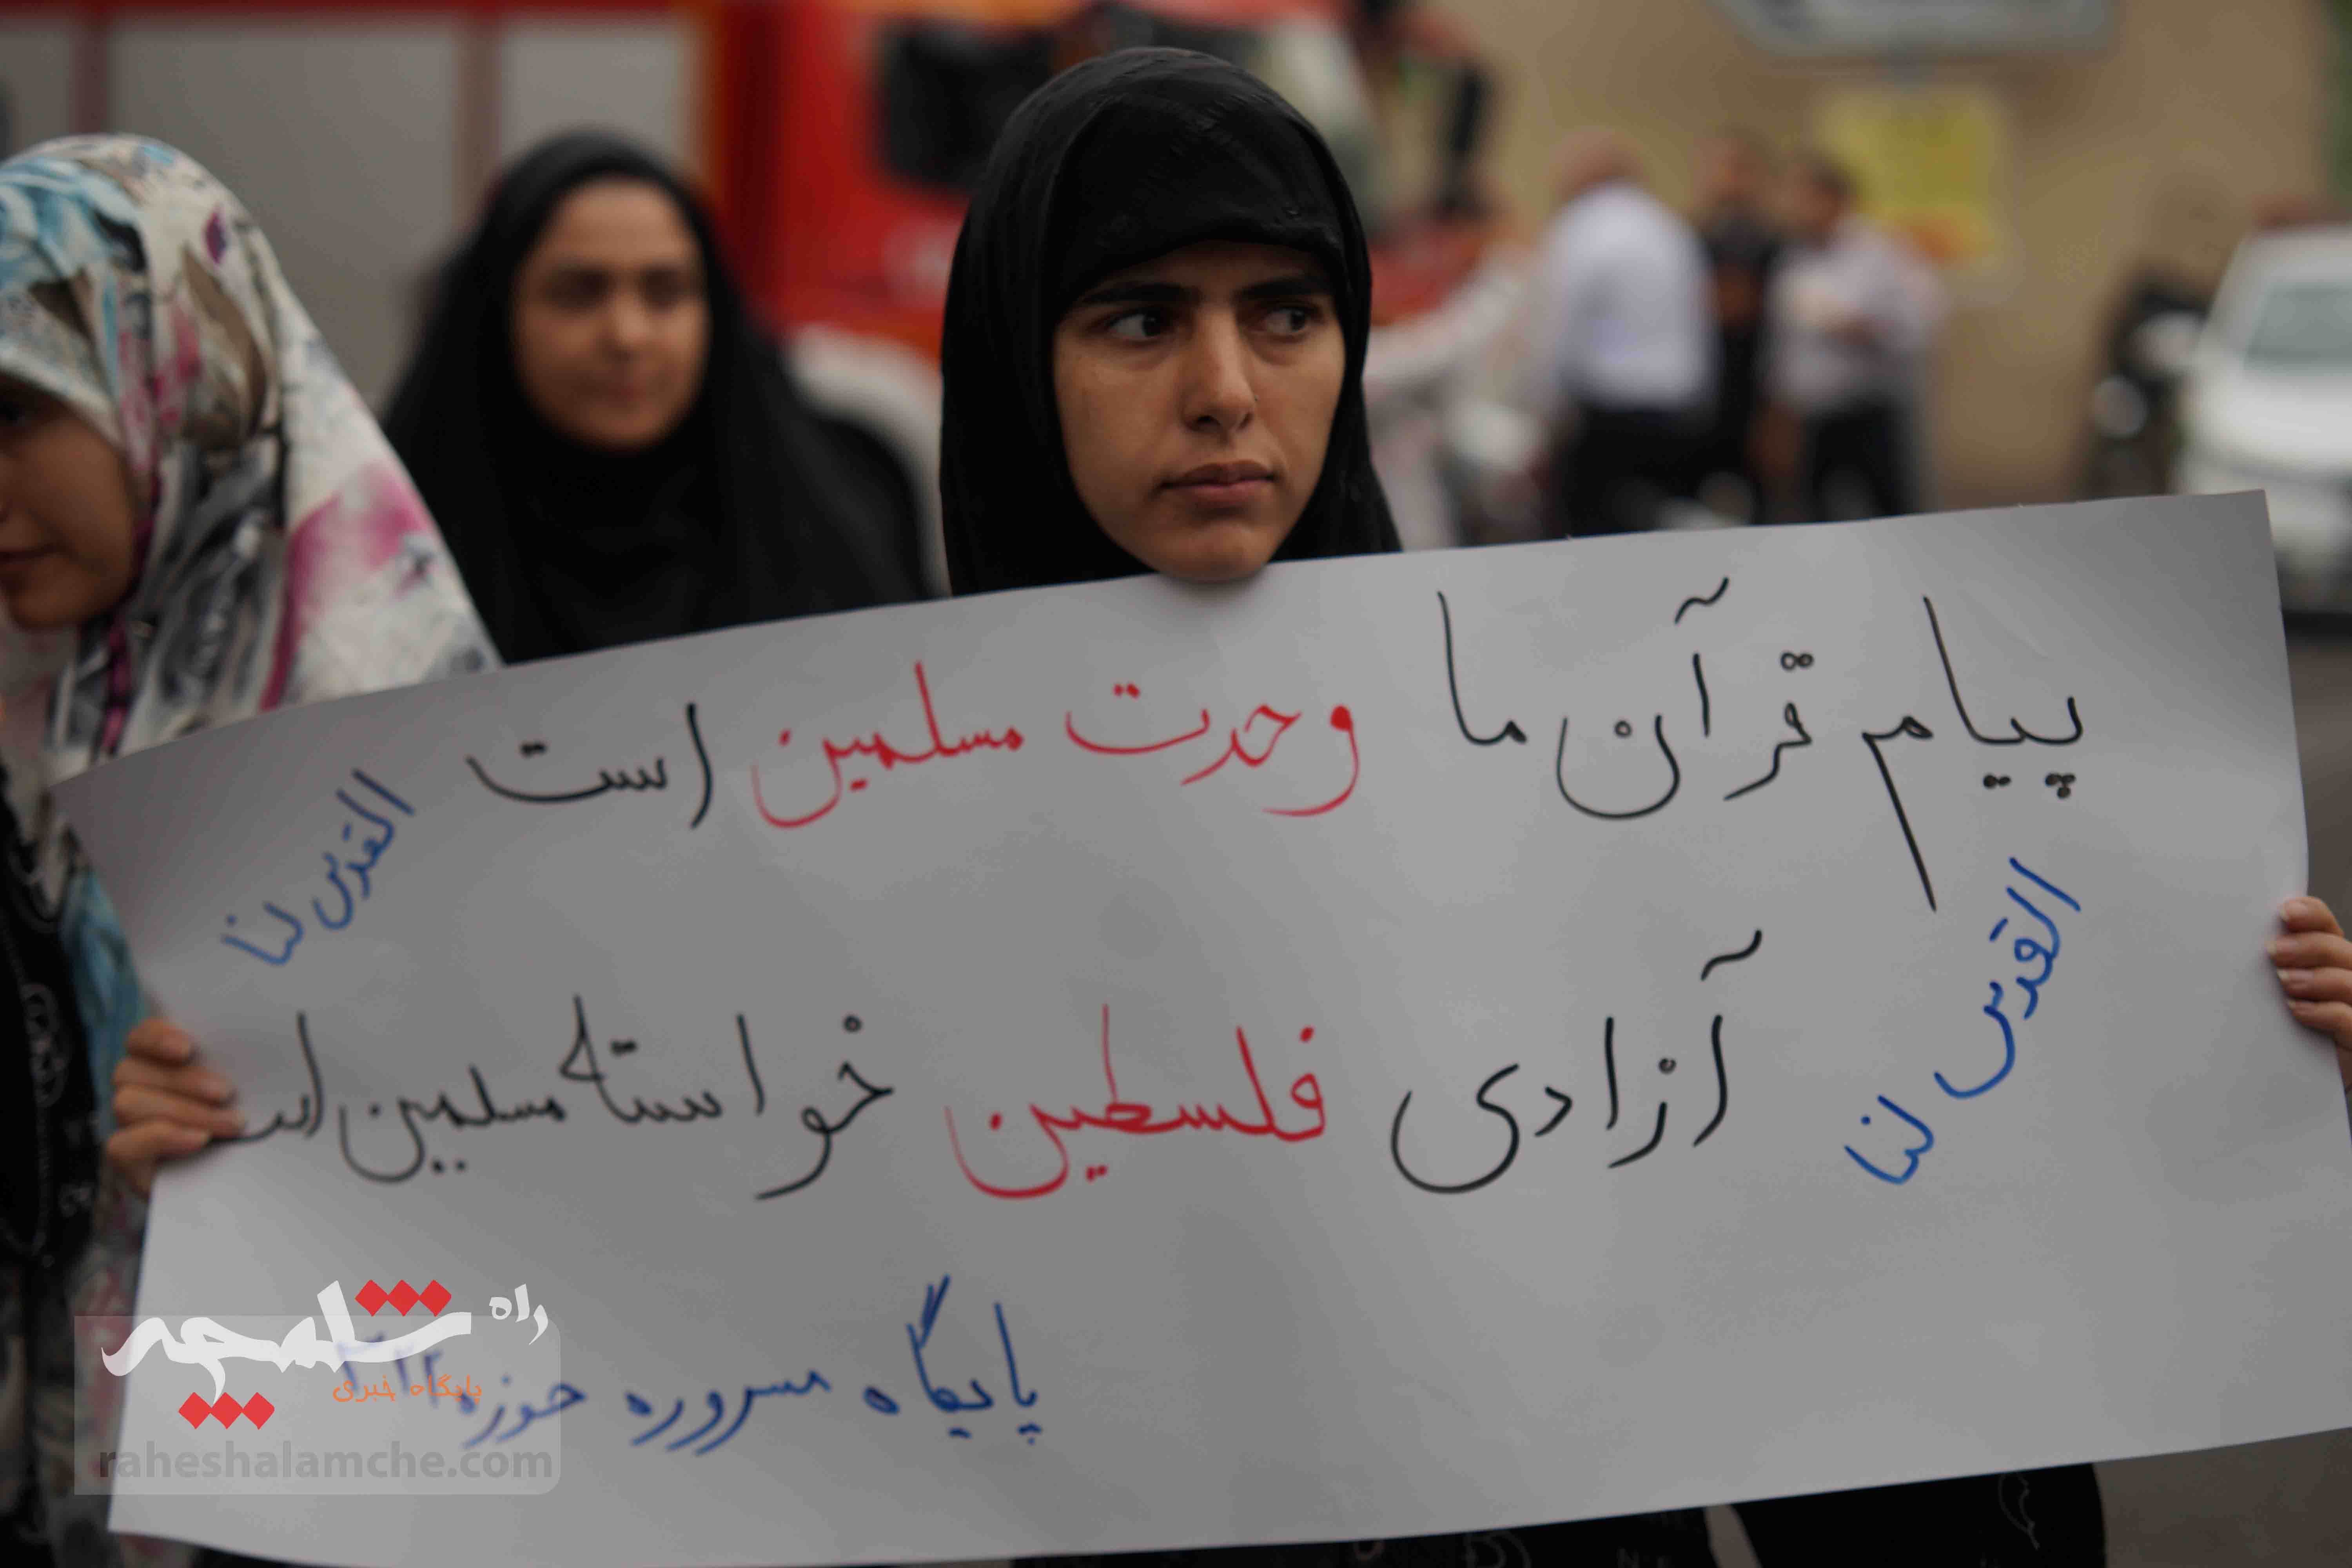 پیام قرآن ما وحدت مسلمین است
القدس لنا
القدس لنا
آزادی فلسطین خواستهٔ مسلمین است
پایگاه مسروره حوزه
راه شلمچه
پایگاه خبری
raheshalamche.com